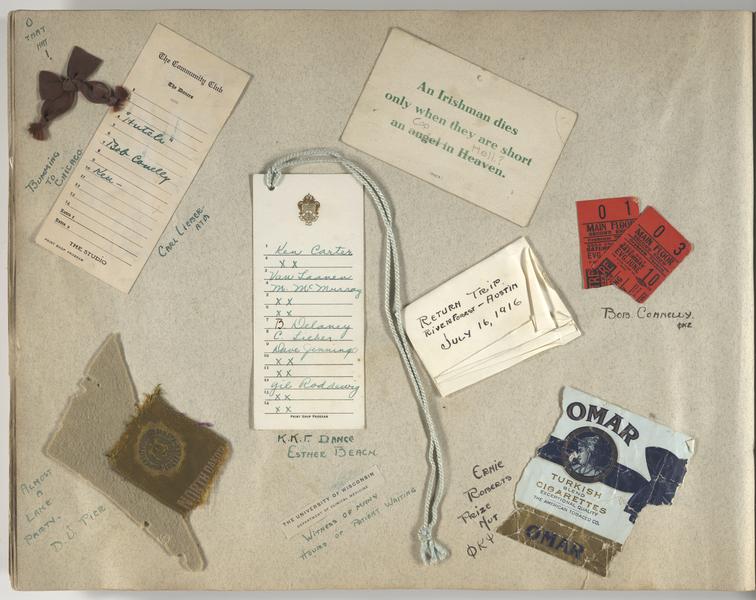 O
THAT
HAT
!
The Community Club
The Dances
"Hutch"
Bob Conelly
Ken -
THE STUDIO
PRINT SHOP PROGRAM
BUMMING
TO
CHICAGO
CARL LIEBER
ATΔ
An Irishman dies
only when they are short
Coo Hell?
an angel in Heaven.
1 Ken Carter
2 X X
3 Van Laanen
4 M. McMurray
5 X X
6 X X
7 B. Delaney
8 C. Lieber
9 Dave Jennings
10 X X
11 X X
12 Gil Roddewig
13 X X
14 X X
PRINT SHOP PROGRAM
K.K.Γ. DANCE
ESTHER BEACH
RETURN TRIP.
RIVER FOREST - AUSTIN
JULY 16, 1916
0 1
MAIN FLOOR
EVG
0 3
MAIN FLOOR
SATURDAY
EVG. JUNE
10
BOB CONNELLY.
ΦΚΣ
ALMOST
A
LAKE
PARTY.
D.U. PIER
THE UNIVERSITY OF WISCONSIN
DEPARTMENT OF CLINICAL MEDICINE
WITNESS OF MANY
HOURS OF PATIENT WAITING
ERNIE
ROBERTS
PRIZE
NUT
ΦΚΨ
OMAR
TURKISH
BLEND
CIGARETTES
EXCEPTIONAL QUALITY
THE AMERICAN TOBACCO CO.
OMAR